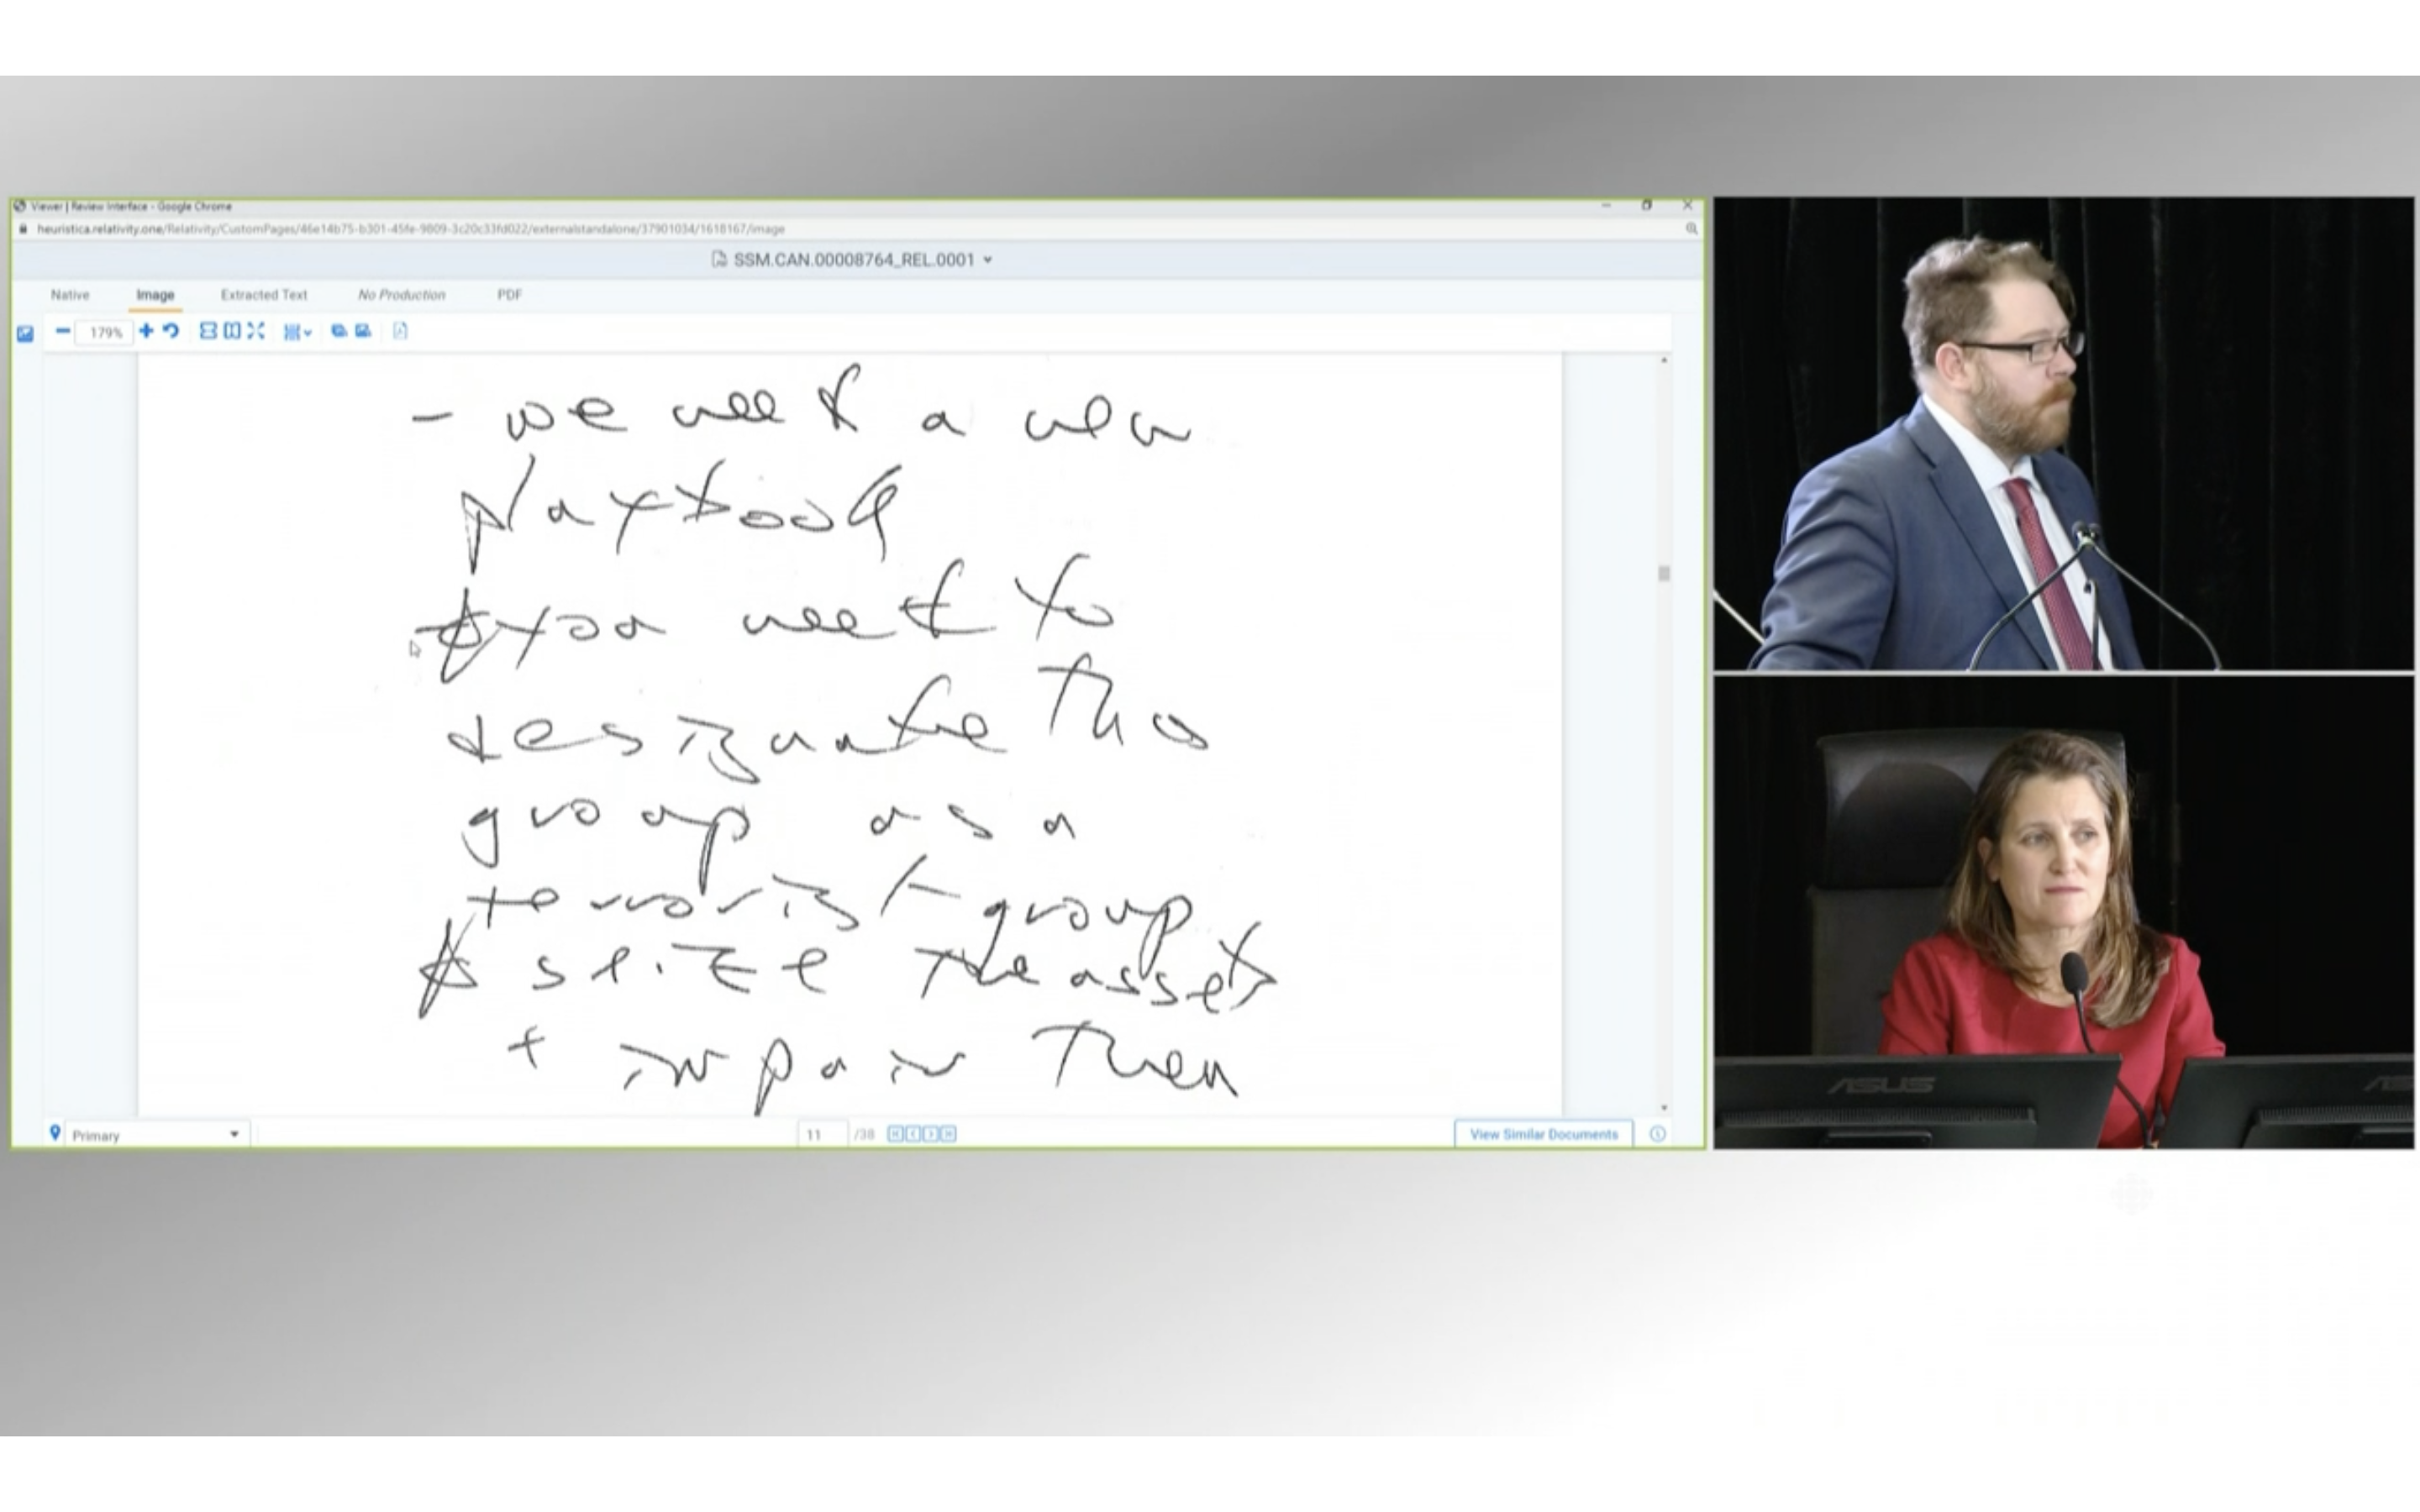 Viewer | Review Interface - Google Chrome
heuristica.relativity.one/Relativity/CustomPages/46e14b75-b301-45fe-9809-3c20c33fd022/externalstandalone/37901034/1618167/image
SSM.CAN.00008764_REL.0001
Native Image Extracted Text No Production PDF
179%
- we need a new
playbook
- you need to
designate this
group as a
terrorist group
seize the assets
+ impair them
Primary 11 /38 View Similar Documents
ASUS